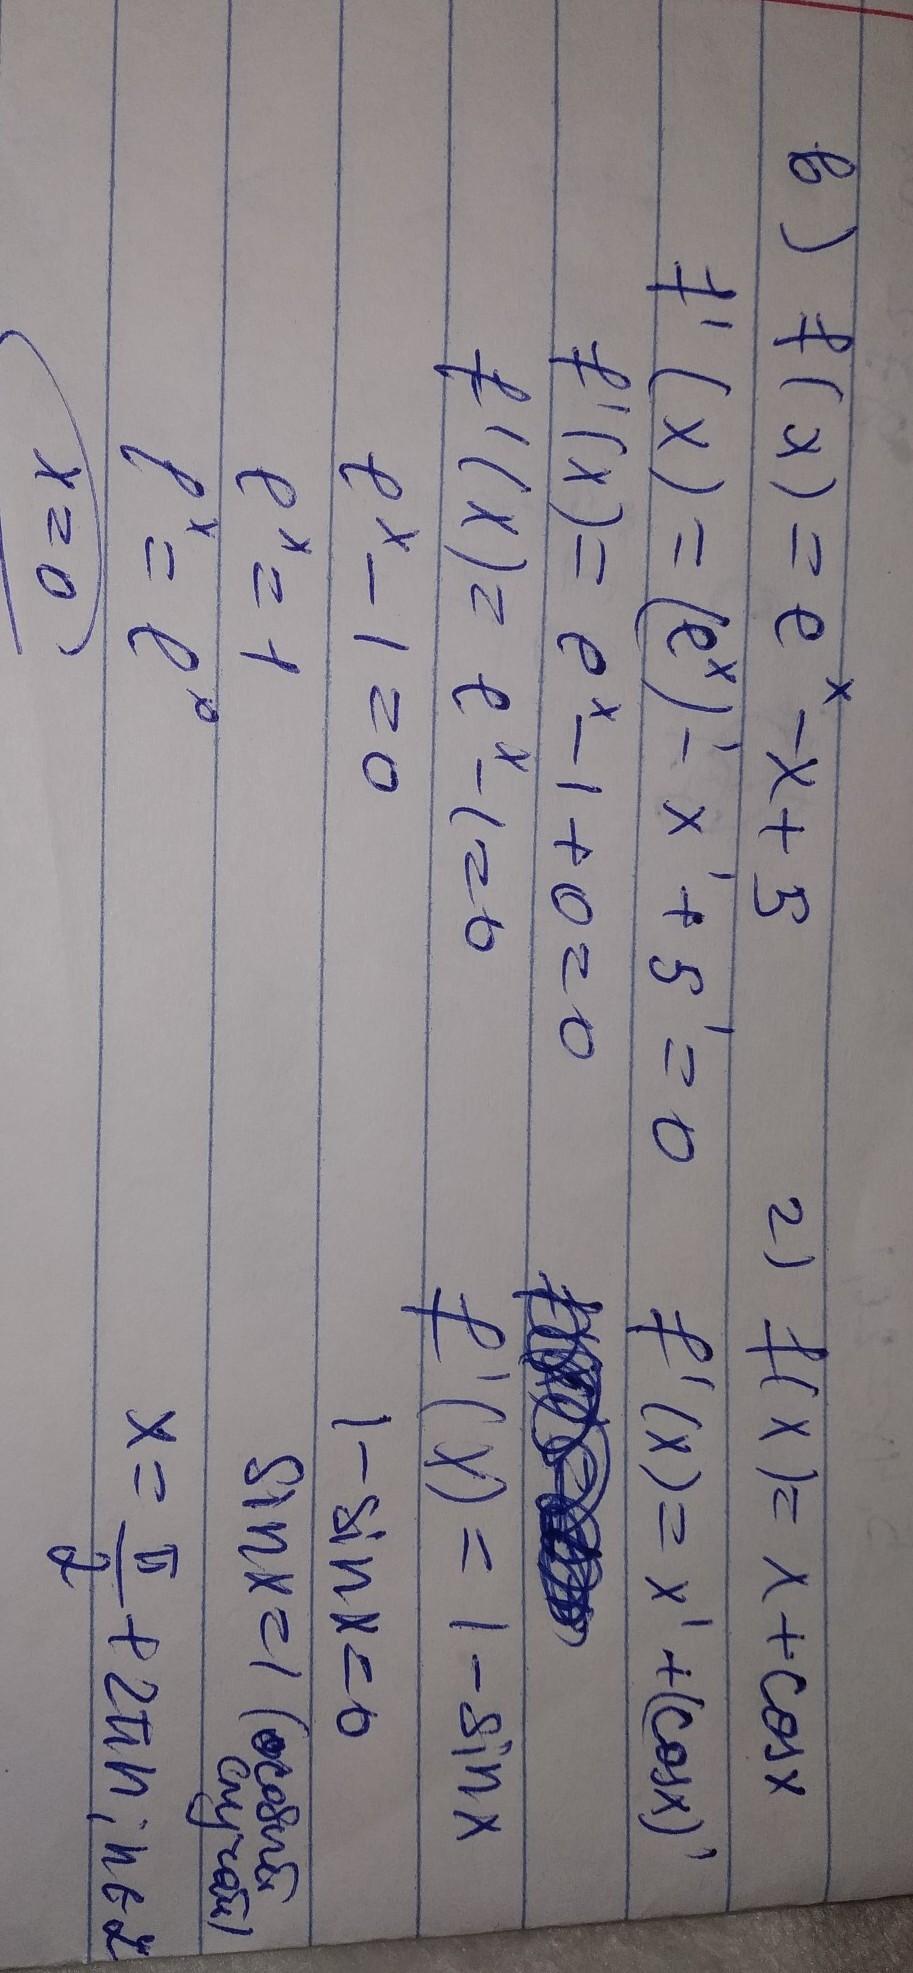 в) f(x) = e^x - x + 5
f'(x) = (e^x)' - x' + 5' = 0
f'(x) = e^x - 1 + 0 = 0
f'(x) = e^x - 1 = 0
e^x - 1 = 0
e^x = 1
e^x = e^0
x = 0
г) f(x) = x + cosx
f'(x) = x' + (cosx)'
f'(x) = 1 - sinx
1 - sinx = 0
sinx = 1 (особый
случай)
x = π/2 + 2πn, n∈Z